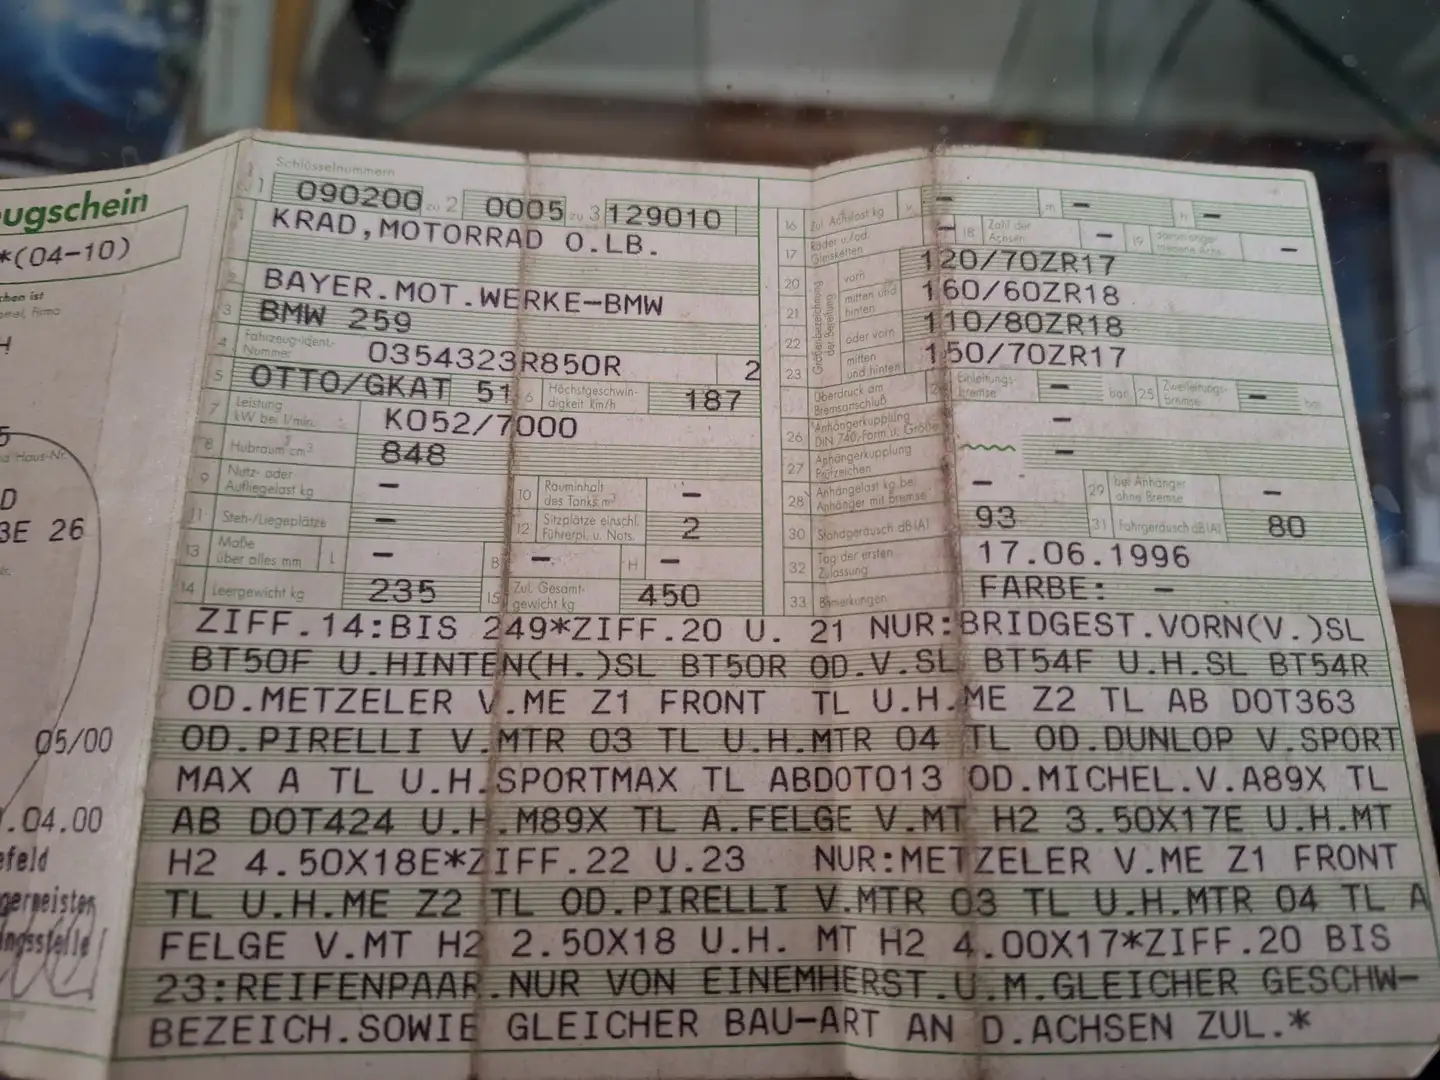 ugschein
*(04-10)
chen ist
Firma
H
5
nd Haus-Nr.
D
BE 26
05/00
.04.00
efeld
germeister
ngsstelle
Schlüsselnummern
1 090200 zu 2 0005 zu 3 129010
1 KRAD,MOTORRAD O.LB.
2 BAYER.MOT.WERKE-BMW
3 BMW 259
4 Fahrzeug-Ident.-
Nummer 0354323R850R 2
5 OTTO/GKAT 51 6 Höchstgeschwin-
digkeit km/h 187
7 Leistung
kW bei l/min. K052/7000
8 Hubraum cm³ 848
9 Nutz- oder
Aufliegelast kg – 10 Rauminhalt
des Tanks m³ –
11 Steh-/Liegeplätze – 12 Sitzplätze einschl.
Führerpl. u. Nots. 2
13 Maße
über alles mm L – B – H –
14 Leergewicht kg 235 15 Zul. Gesamt-
gewicht kg 450
16 Zul. Achslast kg v – m – h –
17 Räder u./od.
Gleisketten – 18 Zahl der
Achsen – 19 –
Größenbezeichnung
der Bereifung
20 vorn 120/70ZR17
21 mitten und
hinten 160/60ZR18
22 oder vorn 110/80ZR18
23 mitten
und hinten 150/70ZR17
Überdruck am
Bremsanschluß 24 Einleitungs-
bremse – bar 25 Zweileitungs-
bremse – bar
26 Anhängerkupplung
DIN 740,-Form u. Größe –
27 Anhängerkupplung
Prüfzeichen –
28 Anhängelast kg bei
Anhänger mit Bremse – 29 bei Anhänger
ohne Bremse –
30 Standgeräusch dB(A) 93 31 Fahrgeräusch dB(A) 80
32 Tag der ersten
Zulassung 17.06.1996
33 Bemerkungen FARBE: –
ZIFF.14:BIS 249*ZIFF.20 U. 21 NUR:BRIDGEST.VORN(V.)SL
BT50F U.HINTEN(H.)SL BT50R OD.V.SL BT54F U.H.SL BT54R
OD.METZELER V.ME Z1 FRONT TL U.H.ME Z2 TL AB DOT363
OD.PIRELLI V.MTR 03 TL U.H.MTR 04 TL OD.DUNLOP V.SPORT
MAX A TL U.H.SPORTMAX TL ABDOTO13 OD.MICHEL.V.A89X TL
AB DOT424 U.H.M89X TL A.FELGE V.MT H2 3.50X17E U.H.MT
H2 4.50X18E*ZIFF.22 U.23 NUR:METZELER V.ME Z1 FRONT
TL U.H.ME Z2 TL OD.PIRELLI V.MTR 03 TL U.H.MTR 04 TL A
FELGE V.MT H2 2.50X18 U.H. MT H2 4.00X17*ZIFF.20 BIS
23:REIFENPAAR.NUR VON EINEMHERST.U.M.GLEICHER GESCHW-
BEZEICH.SOWIE GLEICHER BAU-ART AN D.ACHSEN ZUL.*